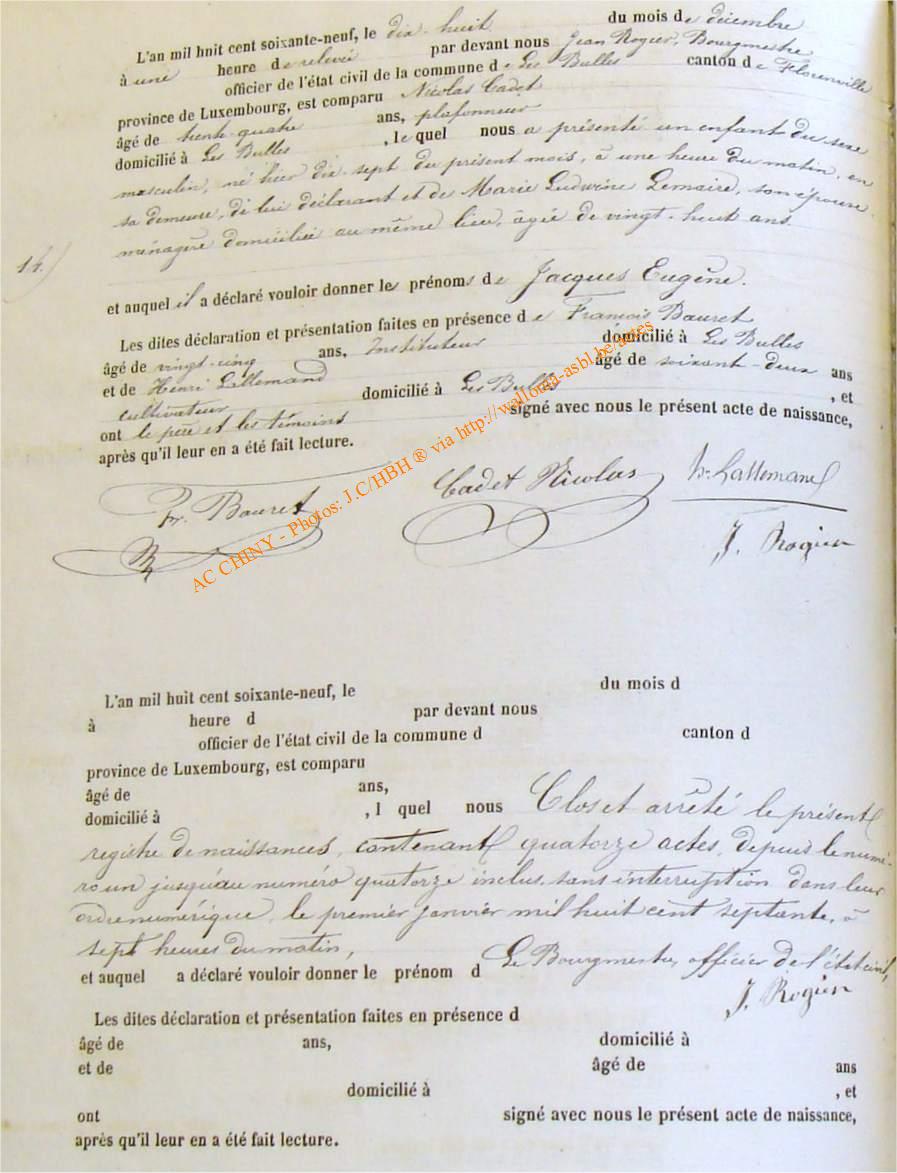 L'an mil huit cent soixante-neuf, le dix-huit du mois de décembre
à une heure de relevée par devant nous Jean Rogier, Bourgmestre
officier de l'état civil de la commune de Les Bulles canton de Florenville
province de Luxembourg, est comparu Nicolas Cadet
âgé de trente-quatre ans, plafonneur
domicilié à Les Bulles, lequel nous a présenté un enfant du sexe
masculin, né hier dix-sept du présent mois, à une heure du matin, en
sa demeure, de lui déclarant et de Marie Ludwine Lemaire, son épouse
ménagère domiciliée au même lieu, âgée de vingt-huit ans
14.)
et auquel il a déclaré vouloir donner les prénoms de Jacques Eugène.
Les dites déclaration et présentation faites en présence de François Bauret
âgé de vingt-cinq ans, Instituteur domicilié à Les Bulles
et de Henri Lallemand âgé de soixant-deux ans
cultivateur domicilié à Les Bulles, et
ont le père et les témoins signé avec nous le présent acte de naissance,
après qu'il leur en a été fait lecture.
Fr. Bauret Cadet Nicolas h. Lallemand
J. Rogier
AC CHINY - Photos: J.C/HBH ® via http://wallonia-asbl.be/actes
L'an mil huit cent soixante-neuf, le du mois d
à heure d par devant nous
officier de l'état civil de la commune d canton d
province de Luxembourg, est comparu
âgé de ans,
domicilié à , l quel nous Clos et arrêté le présent
registre de naissances, contenant quatorze actes, depuis le numé-
ro un jusqu'au numéro quatorze inclus, sans interruption dans leur
ordre numérique, le premier janvier mil huit cent septante, à
sept heures du matin,
et auquel a déclaré vouloir donner le prénom d Le Bourgmestre, officier de l'état civil,
J. Rogier
Les dites déclaration et présentation faites en présence d
âgé de ans, domicilié à
et de âgé de ans
domicilié à , et
ont signé avec nous le présent acte de naissance,
après qu'il leur en a été fait lecture.